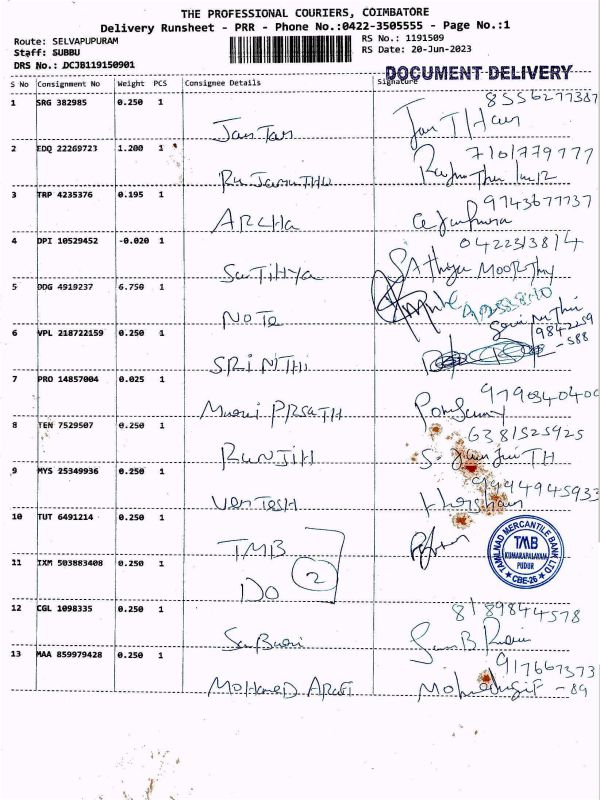 THE PROFESSIONAL COURIERS, COIMBATORE
Delivery Runsheet - PRR - Phone No.:0422-3505555 - Page No.:1
Route: SELVAPUPURAM
RS No.: 1191509
Staff: SUBBU
RS Date: 20-Jun-2023
DRS No.: DCJB119150901
DOCUMENT DELIVERY
S No Consignment No Weight PCS Consignee Details Signature
1 SRG 382985 0.250 1
2 EDQ 22269723 1.200 1
7101779777
3 TRP 4235376 0.195 1
9743677737
ARCHA
4 DPI 10529452 -0.020 1
SATHYA MOORTHY
5 DDG 4919237 6.750 1
NOTE
6 VPL 218722159 0.250 1
9842259
-588
SRINITHI
7 PRO 14857004 0.025 1
8 TEN 7529507 0.250 1
6381525925
RUNJIH
9 MYS 25349936 0.250 1
9944945933
VENTESH
10 TUT 6491214 0.250 1
TMB
TAMILNAD MERCANTILE BANK LTD
TMB
KUMARAPALAYAM
PUDUR
CBE-26
11 IXM 503883408 0.250 1
DO
2
12 CGL 1098335 0.250 1
8189844578
13 MAA 859979428 0.250 1
917667373
-89